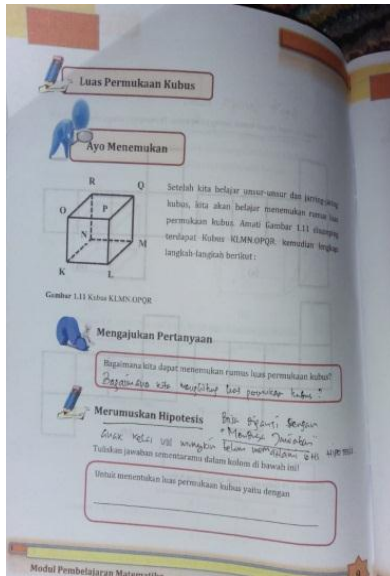 Luas Permukaan Kubus
Ayo Menemukan
R Q
O P
N M
K L
Setelah kita belajar unsur-unsur dan jaring-jaring
kubus, kita akan belajar menemukan rumus luas
permukaan kubus. Amati Gambar 1.11 disamping
terdapat Kubus KLMN.OPQR, kemudian lengkapi
langkah-langkah berikut :
Gambar 1.11 Kubus KLMN.OPQR
Mengajukan Pertanyaan
Bagaimana kita dapat menemukan rumus luas permukaan kubus?
Bagaimana kita menghitung luas permukaan kubus ?
Merumuskan Hipotesis
Bisa diganti dengan
"Menduga Jawaban
anak kelas VIII mungkin belum memahami
Tuliskan jawaban sementaramu dalam kolom di bawah ini!
Untuk menentukan luas permukaan kubus yaitu dengan
Modul Pembelajaran Matematika
9